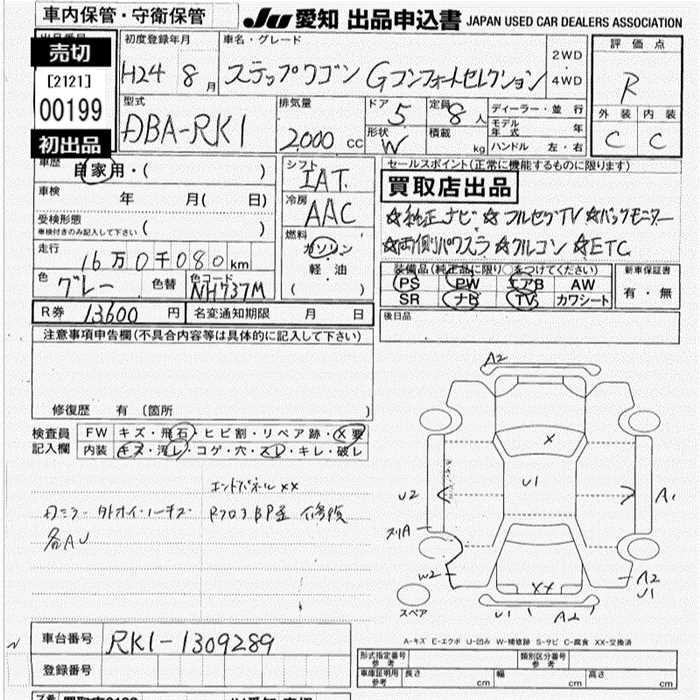 車内保管・守衛保管
JU 愛知 出品申込書 JAPAN USED CAR DEALERS ASSOCIATION
売切
[2121]
00199
初出品
初度登録年月
H24 8月
車名・グレード
ステップワゴン Gコンフォートセレクション
2WD
・
4WD
評価点
R
外装 内装
C C
型式
DBA-RK1
排気量
2000 cc
ドア 5
形状 W
定員 8人
積載 kg
ディーラー・並行
モデル年式 年
ハンドル 左・右
車歴
自家用・( )
車検
年 月( 日)
受検形態
車検付きのみ記入して下さい ( )
走行
16万0千080km
色 グレー 色替 色コード NH737M
シフト
IAT.
冷房
AAC
燃料
ガソリン
軽油
( )
セールスポイント(正常に機能するものに限ります)
買取店出品
☆純正ナビ ☆フルセグTV ☆バックモニター
☆両側パワスラ ☆クルコン ☆ETC
装備品(純正品に限り○をつけてください)
PS PW エアB AW
SR ナビ TV カワシート
新車保証書
有・無
R券 13600円 名変通知期限 月 日
後日品
注意事項申告欄(不具合内容等は具体的に記入して下さい)
修復歴 有 〔箇所 )
検査員
記入欄
FW キズ・飛石・ヒビ割・リペア跡・X要
内装 キズ・汚レ・コゲ・穴・スレ・キレ・破レ
エンドパネルXX
各AU
A2
X
U1
U2
A1
スリA
W2
XX
A2
U1
U1
A2
スペア
A-キズ E-エクボ U-凹み W-補修跡 S-サビ C-腐食 XX-交換済
車台番号 RK1-1309289
登録番号
形式指定番号
参考
類別区分番号
参考
車庫証明用
参考
長さ cm 幅 cm 高さ cm